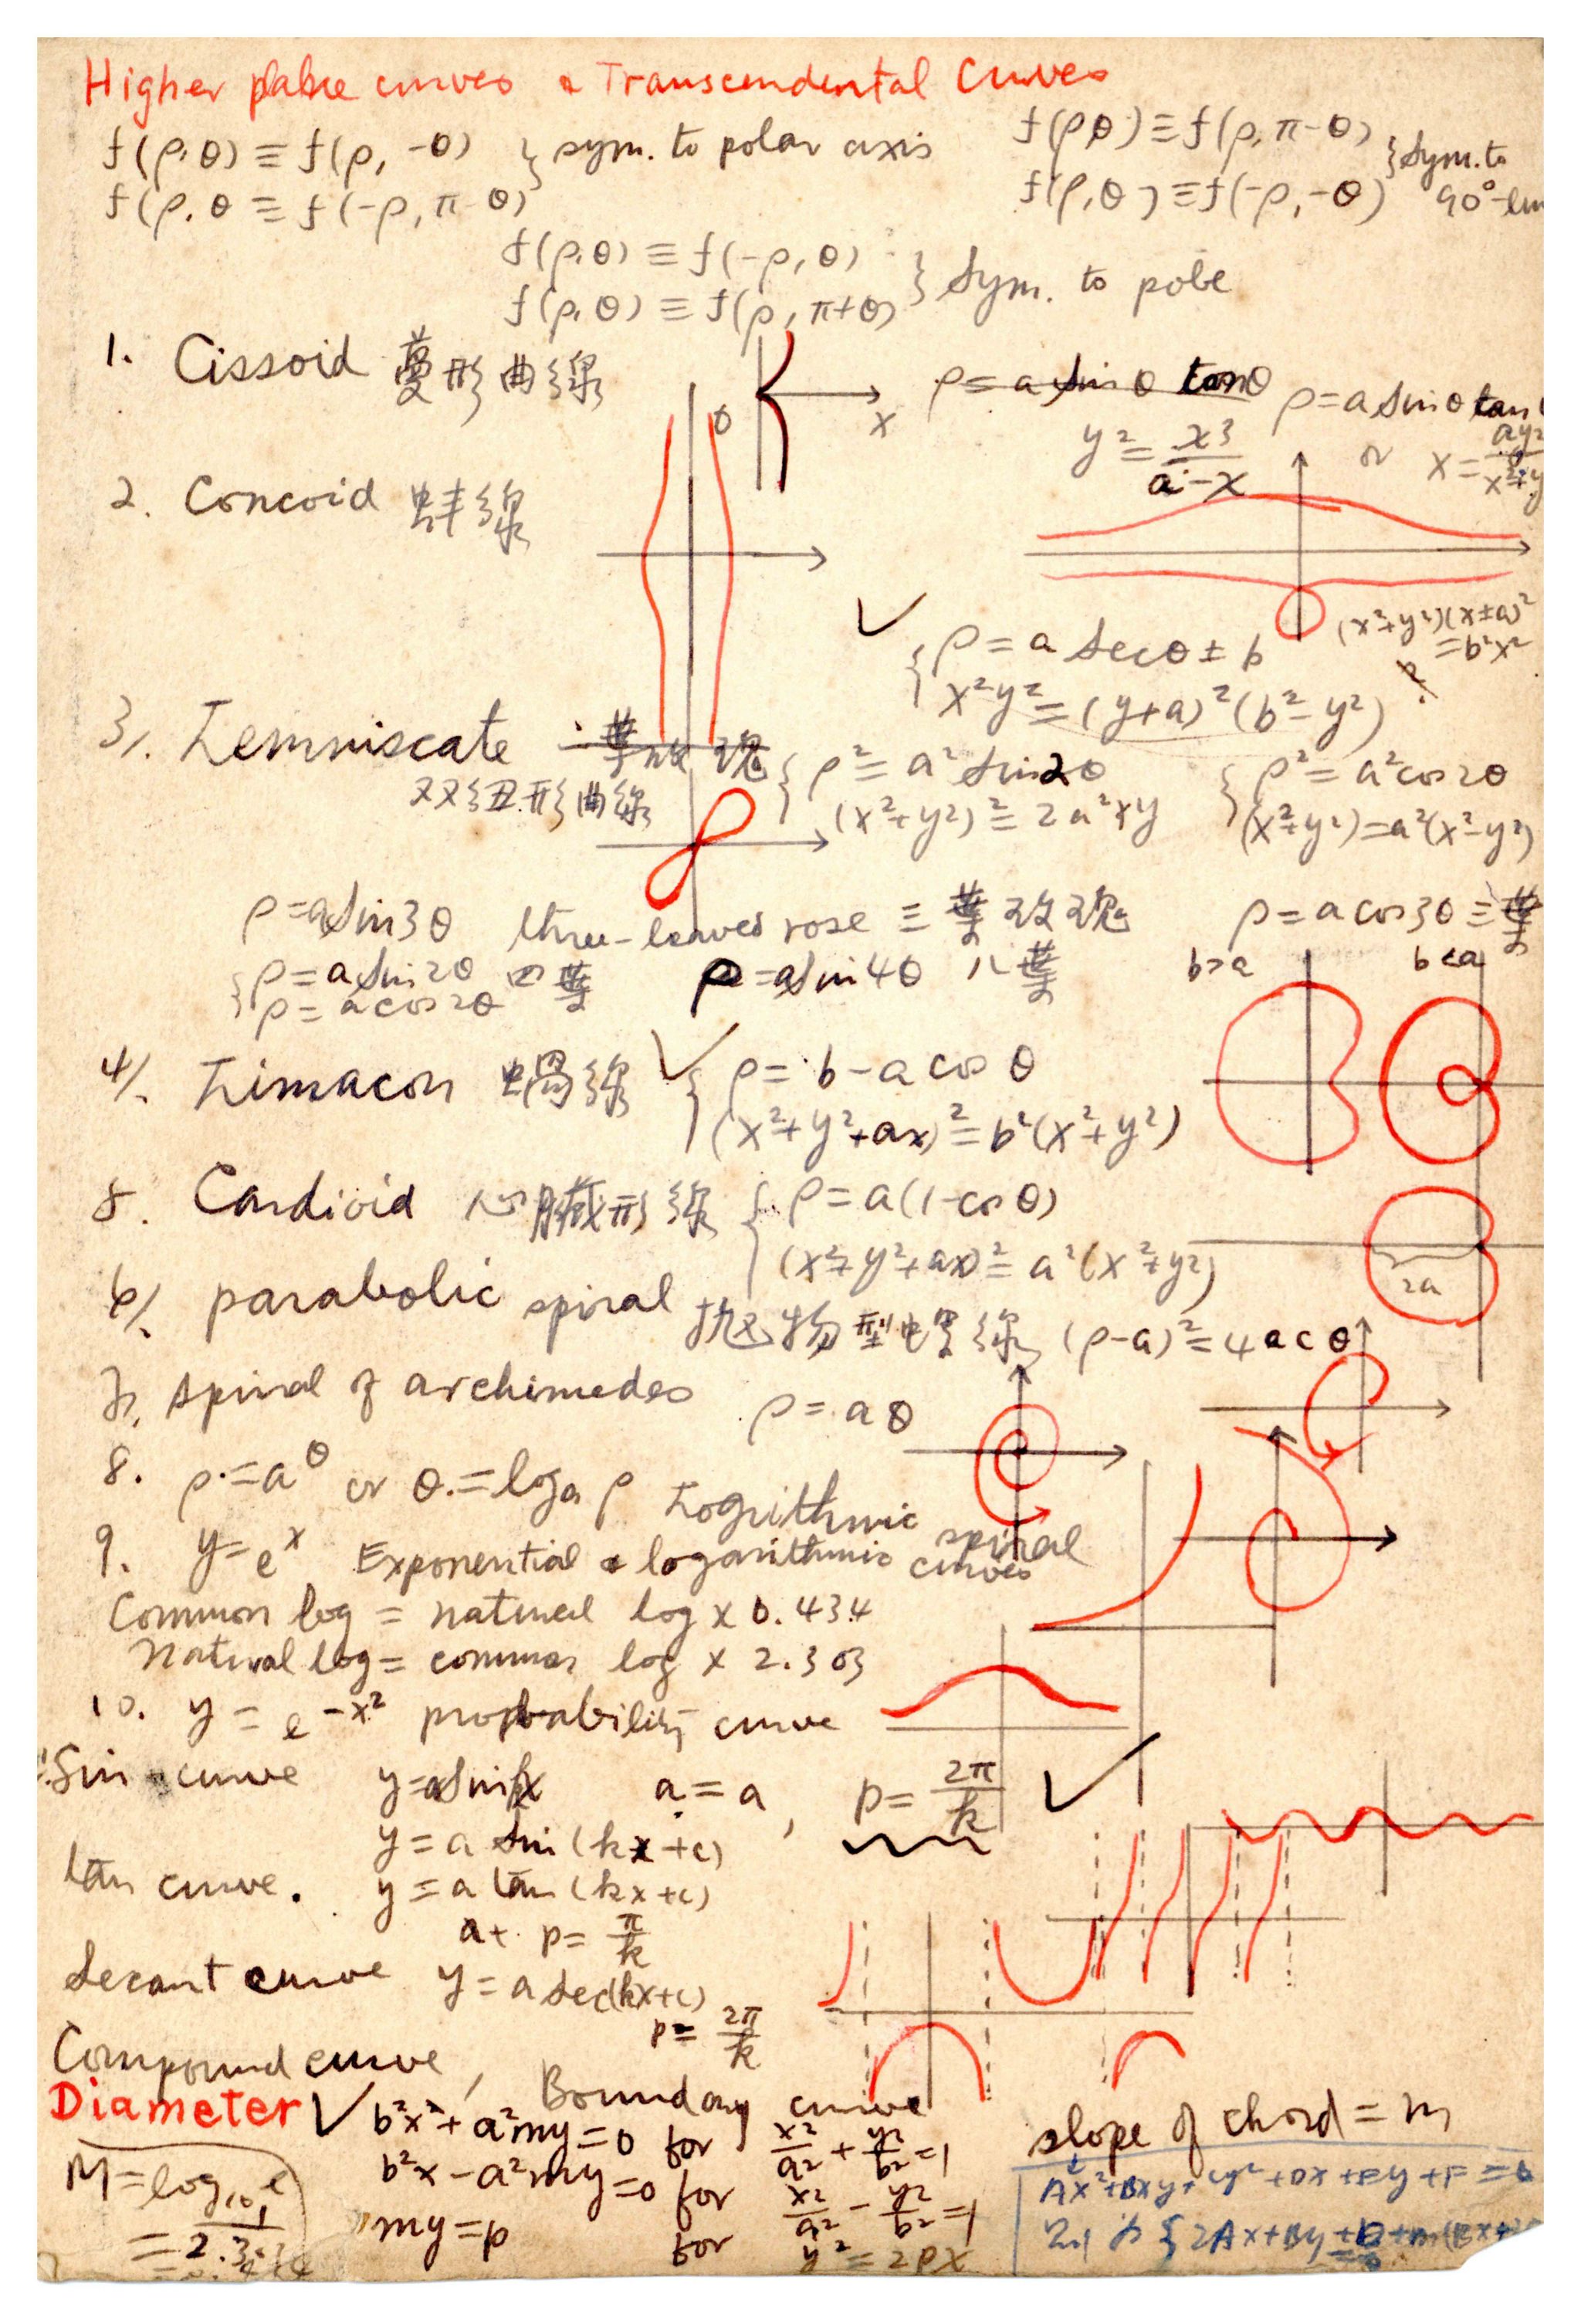 Higher plane curves & Transcendental Curves
f(ρ,θ) ≡ f(ρ, -θ) } sym. to polar axis
f(ρ, θ ≡ f(-ρ, π-θ)
f(ρ,θ) ≡ f(ρ, π-θ) } sym. to
f(ρ,θ) ≡ f(-ρ, -θ) 90°-
f(ρ,θ) ≡ f(-ρ, θ) } Sym. to pole
f(ρ,θ) ≡ f(ρ, π+θ)
1. Cissoid 蔓形曲線
x
ρ = a sin θ tan θ
ρ = a sin θ tan
y² = x³/(a-x) or x =
2. Concoid 蚌線
0
(x²+y²)(x±a)²
= b²x²
{ ρ = a sec θ ± b
x²y² = (y+a)²(b²-y²)
3. Lemniscate 一葉玫瑰
双纽形曲線
{ ρ² = a² sin 2θ
(x²+y²)² = 2a²xy
{ ρ² = a² cos 2θ
(x²+y²) = a²(x²-y²)
ρ = a sin 3θ three-leaves rose 三葉玫瑰 ρ = a cos 3θ 三葉
{ ρ = a sin 2θ 四葉 ρ = a sin 4θ 八葉
ρ = a cos 2θ
b>a b<a
4. Limacon 蝸線 { ρ = b - a cos θ
(x²+y²+ax)² = b²(x²+y²)
5. Cardioid 心臟形線 { ρ = a(1-cos θ)
(x²+y²+ax)² = a²(x²+y²)
2a
6. parabolic spiral 抛物型螺線 (ρ-a)² = 4acθ
7. spiral of archimedes ρ = aθ
8. ρ = a^θ or θ = log_a ρ Logrithmic spiral
9. y = e^x Exponential & logarithmic curves
Common log = natural log x 0.434
Natural log = common log x 2.303
10. y = e^-x² probability curve
Sin curve y = a sin kx a = a, p = 2π/k
y = a sin (kx + c)
tan curve. y = a tan (kx + c)
a+ p = π/k
Secant curve y = a sec(kx+c)
p = 2π/k
Compound curve, Boundary curve
Diameter b²x + a²my = 0 for x²/a² + y²/b² = 1
slope of chord = m
b²x - a²my = 0 for x²/a² - y²/b² = 1
my = p for y² = 2px
M = log₁₀ e
Ax²+Bxy+cy²+Dx+Ey+F = 0